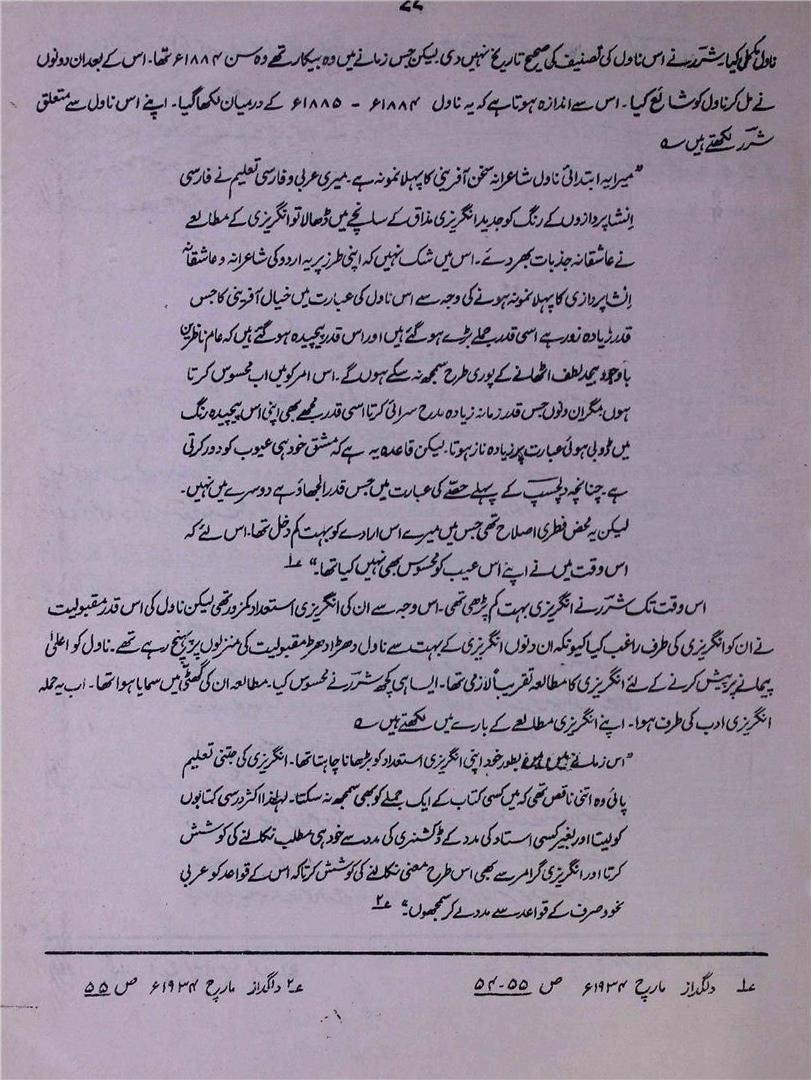 ناول مکمل کیا۔ شررؔ نے اس ناول کی تصنیف کی صحیح تاریخ نہیں دی لیکن جس زمانے میں وہ بیکار تھے وہ سن ۱۸۸۴ء تھا۔ اس کے بعد ان دونوں
نے مل کر ناول کو شائع کیا۔ اس سے اندازہ ہوتا ہے کہ یہ ناول ۱۸۸۴ء - ۱۸۸۵ء کے درمیان لکھا گیا۔ اپنے اس ناول سے متعلق
شررؔ لکھتے ہیں ؎
"میرا یہ ابتدائی ناول شاعرانہ سخن آفرینی کا پہلا نمونہ ہے۔ میری عربی و فارسی تعلیم نے فارسی
انشا پردازوں کے رنگ کو جدید انگریزی مذاق کے سانچے میں ڈھالا تو انگریزی کے مطالعے
نے عاشقانہ جذبات بھر دئے۔ اس میں شک نہیں کہ اپنی طرز پر یہ اردو کی شاعرانہ و عاشقانہ
انشا پردازی کا پہلا نمونہ ہونے کی وجہ سے اس ناول کی عبارت میں خیال آفرینی کا جس
قدر زیادہ زور ہے اسی قدر جملے بڑے ہو گئے ہیں اور اس قدر پیچیدہ ہو گئے ہیں کہ عام ناظرین
باوجود بیحد لطف اٹھانے کے پوری طرح سمجھ نہ سکے ہوں گے۔ اس امر کو میں اب محسوس کرتا
ہوں مگر ان دنوں جس قدر زمانہ زیادہ مدح سرائی کرتا اسی قدر مجھے بھی اپنی اس پیچیدہ رنگ
میں ڈوبی ہوئی عبارت پر زیادہ ناز ہوتا۔ لیکن قاعدہ یہ ہے کہ مشق خود ہی عیوب کو دور کرتی
ہے۔ چنانچہ دلچسپ کے پہلے حصّے کی عبارت میں جس قدر الجھاؤ ہے دوسرے میں نہیں۔
لیکن یہ محض فطری اصلاح تھی جس میں میرے اس ارادے کو بہت کم دخل تھا۔ اس لئے کہ
اس وقت میں نے اپنے اس عیب کو محسوس بھی نہیں کیا تھا۔" ؏۱
اس وقت تک شررؔ نے انگریزی بہت کم پڑھی تھی۔ اس وجہ سے ان کی انگریزی استعداد کمزور تھی لیکن ناول کی اس قدر مقبولیت
نے ان کو انگریزی کی طرف راغب کیا کیونکہ ان دنوں انگریزی کے بہت سے ناول دھڑا دھڑ مقبولیت کی منزلوں پر پہنچ رہے تھے۔ ناول کو اعلیٰ
پیمانے پر پیش کرنے کے لئے انگریزی کا مطالعہ تقریباً لازمی تھا۔ ایسا ہی کچھ شررؔ نے محسوس کیا۔ مطالعہ ان کی گھٹی میں سمایا ہوا تھا۔ اب یہ حملہ
انگریزی ادب کی طرف ہوا۔ اپنے انگریزی مطالعے کے بارے میں لکھتے ہیں ؎
"اس زمانے میں میں بطور خود اپنی انگریزی استعداد کو بڑھانا چاہتا تھا۔ انگریزی کی جتنی تعلیم
پائی وہ اتنی ناقص تھی کہ میں کسی کتاب کے ایک جملے کو بھی سمجھ نہ سکتا۔ لہٰذا اکثر درسی کتابوں
کو لیتا اور بغیر کسی استاد کی مدد کے ڈکشنری کی مدد سے خود ہی مطلب نکالنے کی کوشش
کرتا اور انگریزی گرامر سے بھی اس طرح معنی نکالنے کی کوشش کرتا کہ اس کے قواعد کو عربی
نحو و صرف کے قواعد سے مدد لے کر سمجھوں۔" ؏۲
؏۱ دلگداز مارچ ۱۹۳۴ء ص ۵۴-۵۵ ؏۲ دلگداز مارچ ۱۹۳۴ء ص ۵۵